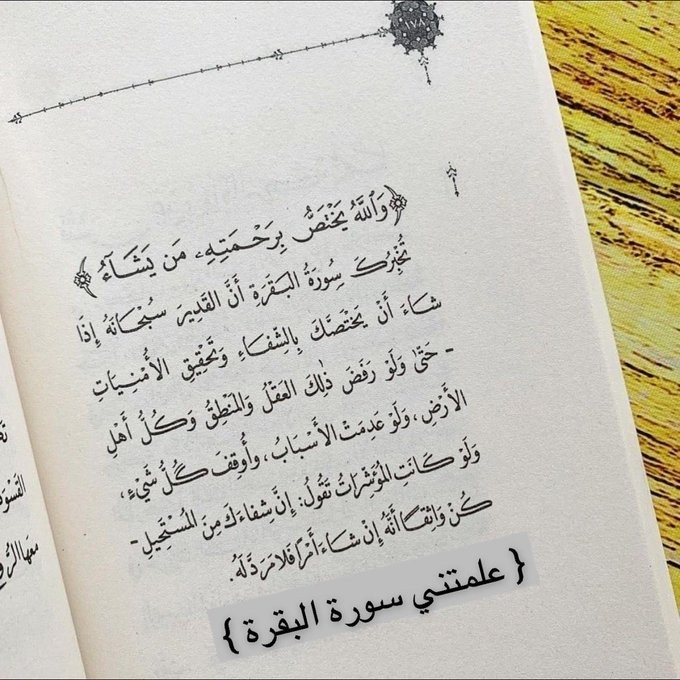 ١٧٨
﴿وَاللَّهُ يَخْتَصُّ بِرَحْمَتِهِ، مَن يَشَاءُ﴾
تُخْبِرُكَ سُورَةُ البَقَرَةِ أَنَّ القَدِيرَ سُبْحَانَهُ إِذَا
شَاءَ أَنْ يَخْتَصَّكَ بِالشِّفَاءِ وَتَحْقِيقِ الأُمْنِيَاتِ
- حَتَّىٰ وَلَوْ رَفَضَ ذٰلِكَ العَقْلُ وَالمَنْطِقُ وَكُلُّ أَهْلِ
الأَرْضِ، وَلَوْ عَدِمَتْ الأَسْبَابُ، وَأُوقِفَ كُلُّ شَيْءٍ،
وَلَوْ كَانَتِ المُؤَشِّرَاتُ تَقُولُ: إِنَّ شِفَاءَكَ مِنَ المُسْتَحِيلِ-
كُنْ وَاثِقًا أَنَّهُ إِنْ شَاءَ أَمْرًا فَلَا مَرَدَّ لَهُ.
{ علمتني سورة البقرة }